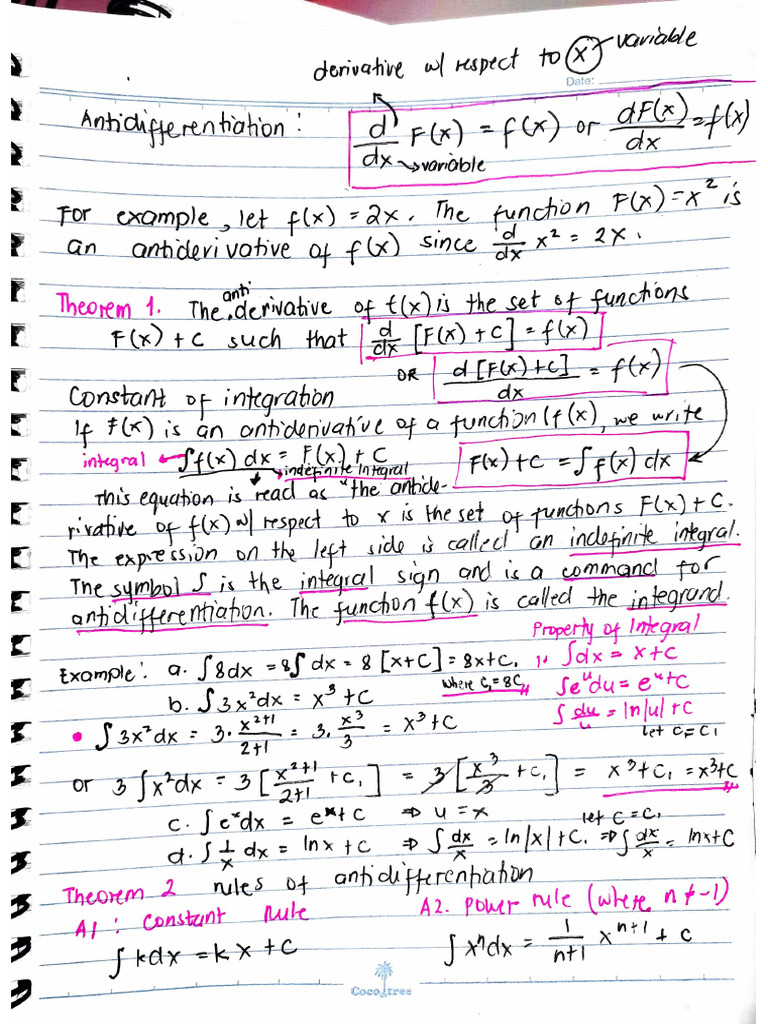 derivative w/ respect to x variable
Date:
Antidifferentiation: d/dx F(x) = f(x) or dF(x)/dx = f(x)
→variable
For example, let f(x) = 2x. The function F(x) = x² is
an antiderivative of f(x) since d/dx x² = 2x.
Theorem 1. The antiderivative of f(x) is the set of functions
F(x) + C such that d/dx [F(x) + C] = f(x)
OR d[F(x) + C]/dx = f(x)
Constant of integration
If F(x) is an antiderivative of a function (f(x), we write
integral ← ∫f(x) dx = F(x) + C F(x) + C = ∫f(x) dx
→indefinite Integral
This equation is read as "the antide-
rivative of f(x) w/ respect to x is the set of functions F(x) + C.
The expression on the left side is called an indefinite integral.
The symbol ∫ is the integral sign and is a command for
antidifferentiation. The function f(x) is called the integrand.
Property of Integral
Example: a. ∫8dx = 8∫dx = 8[x+C] = 8x+C₁ 1. ∫dx = x + C
where C₁ = 8C
b. ∫3x²dx = x³ + C ∫eᵘdu = eᵘ + C
• ∫3x²dx = 3·x²⁺¹/2+1 = 3·x³/3 = x³ + C ∫du/u = ln|u| + C
let C = C₁
or 3∫x²dx = 3[x²⁺¹/2+1 + C₁] = 3[x³/3 + C₁] = x³ + C₁ = x³ + C
c. ∫eˣdx = eˣ + C ⇒ u = x let C = C₁
d. ∫1/x dx = lnx + C ⇒ ∫dx/x = ln|x| + C. ⇒ ∫dx/x = lnx + C
Theorem 2 rules of antidifferentiation
A1: Constant Rule A2. Power rule (where n ≠ -1)
∫kdx = kx + C ∫xⁿdx = 1/n+1 xⁿ⁺¹ + C
Cocotree